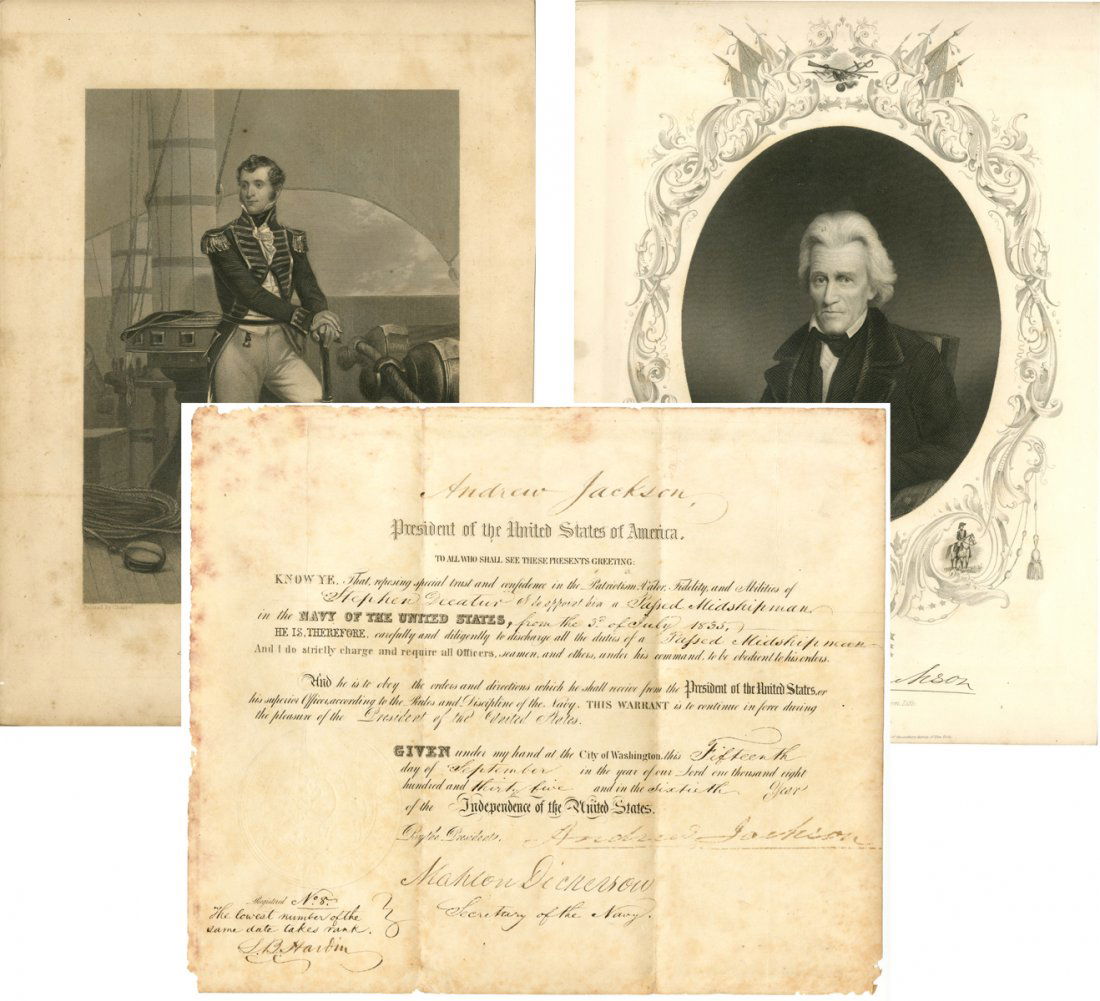 Painted by Chappel
Andrew Jackson,
President of the United States of America,
TO ALL WHO SHALL SEE THESE PRESENTS GREETING:
KNOW YE, That, reposing special trust and confidence in the Patriotism, Valor, Fidelity, and Abilities of
Stephen Decatur I do appoint him a Passed Midshipman,
in the NAVY OF THE UNITED STATES, from the 3d. of July 1835,
HE IS, THEREFORE, carefully and diligently to discharge all the duties of a Passed Midshipman
And I do strictly charge and require all Officers, seamen, and others, under his command, to be obedient to his orders.
And he is to obey the orders and directions which he shall receive from the President of the United States, or
his superior Officer, according to the Rules and Discipline of the Navy. THIS WARRANT is to continue in force during
the pleasure of the President of the United States.
GIVEN under my hand at the City of Washington, this Fifteenth
day of September in the year of our Lord one thousand eight
hundred and thirty five and in the sixtieth Year
of the Independence of the United States.
By the President,
Andrew Jackson
Mahlon Dickerson
Secretary of the Navy.
Registered No 8.
The lowest number of the
same date takes rank.